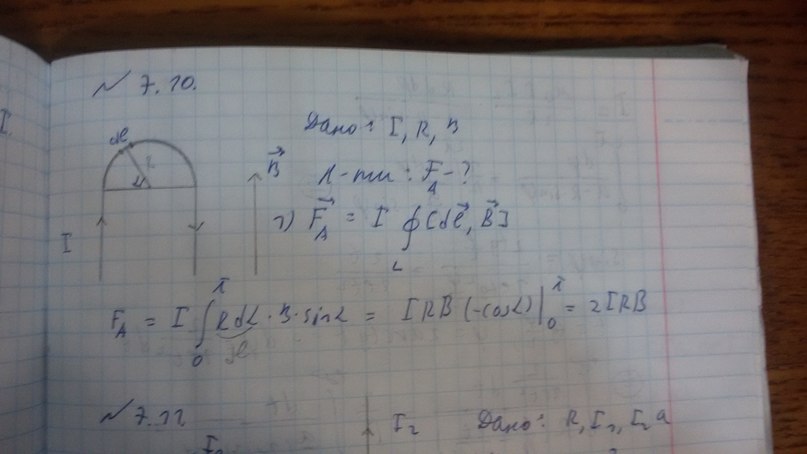 I
№ 7.10.
Дано: I, R, B
dl
R
α
B⃗
I
Н-ти: F_A - ?
1) F⃗_A = I ∮_L [dl⃗, B⃗]
F_A = I ∫_0^π R dα · B · sin α = IRB (-cos α) |_0^π = 2IRB
dl
№ 7.11
I_2
Дано: R, I_1, I_2 a